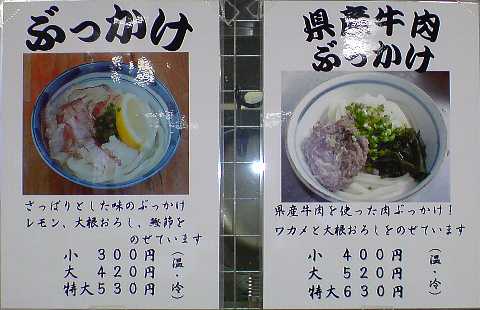 ぶっかけ
さっぱりとした味のぶっかけ
レモン、大根おろし、鰹節を
のせています
小 300円
大 420円
特大530円
(温・冷)
県産牛肉
ぶっかけ
県産牛肉を使った肉ぶっかけ!
ワカメと大根おろしをのせています
小 400円
大 520円
特大630円
(温・冷)